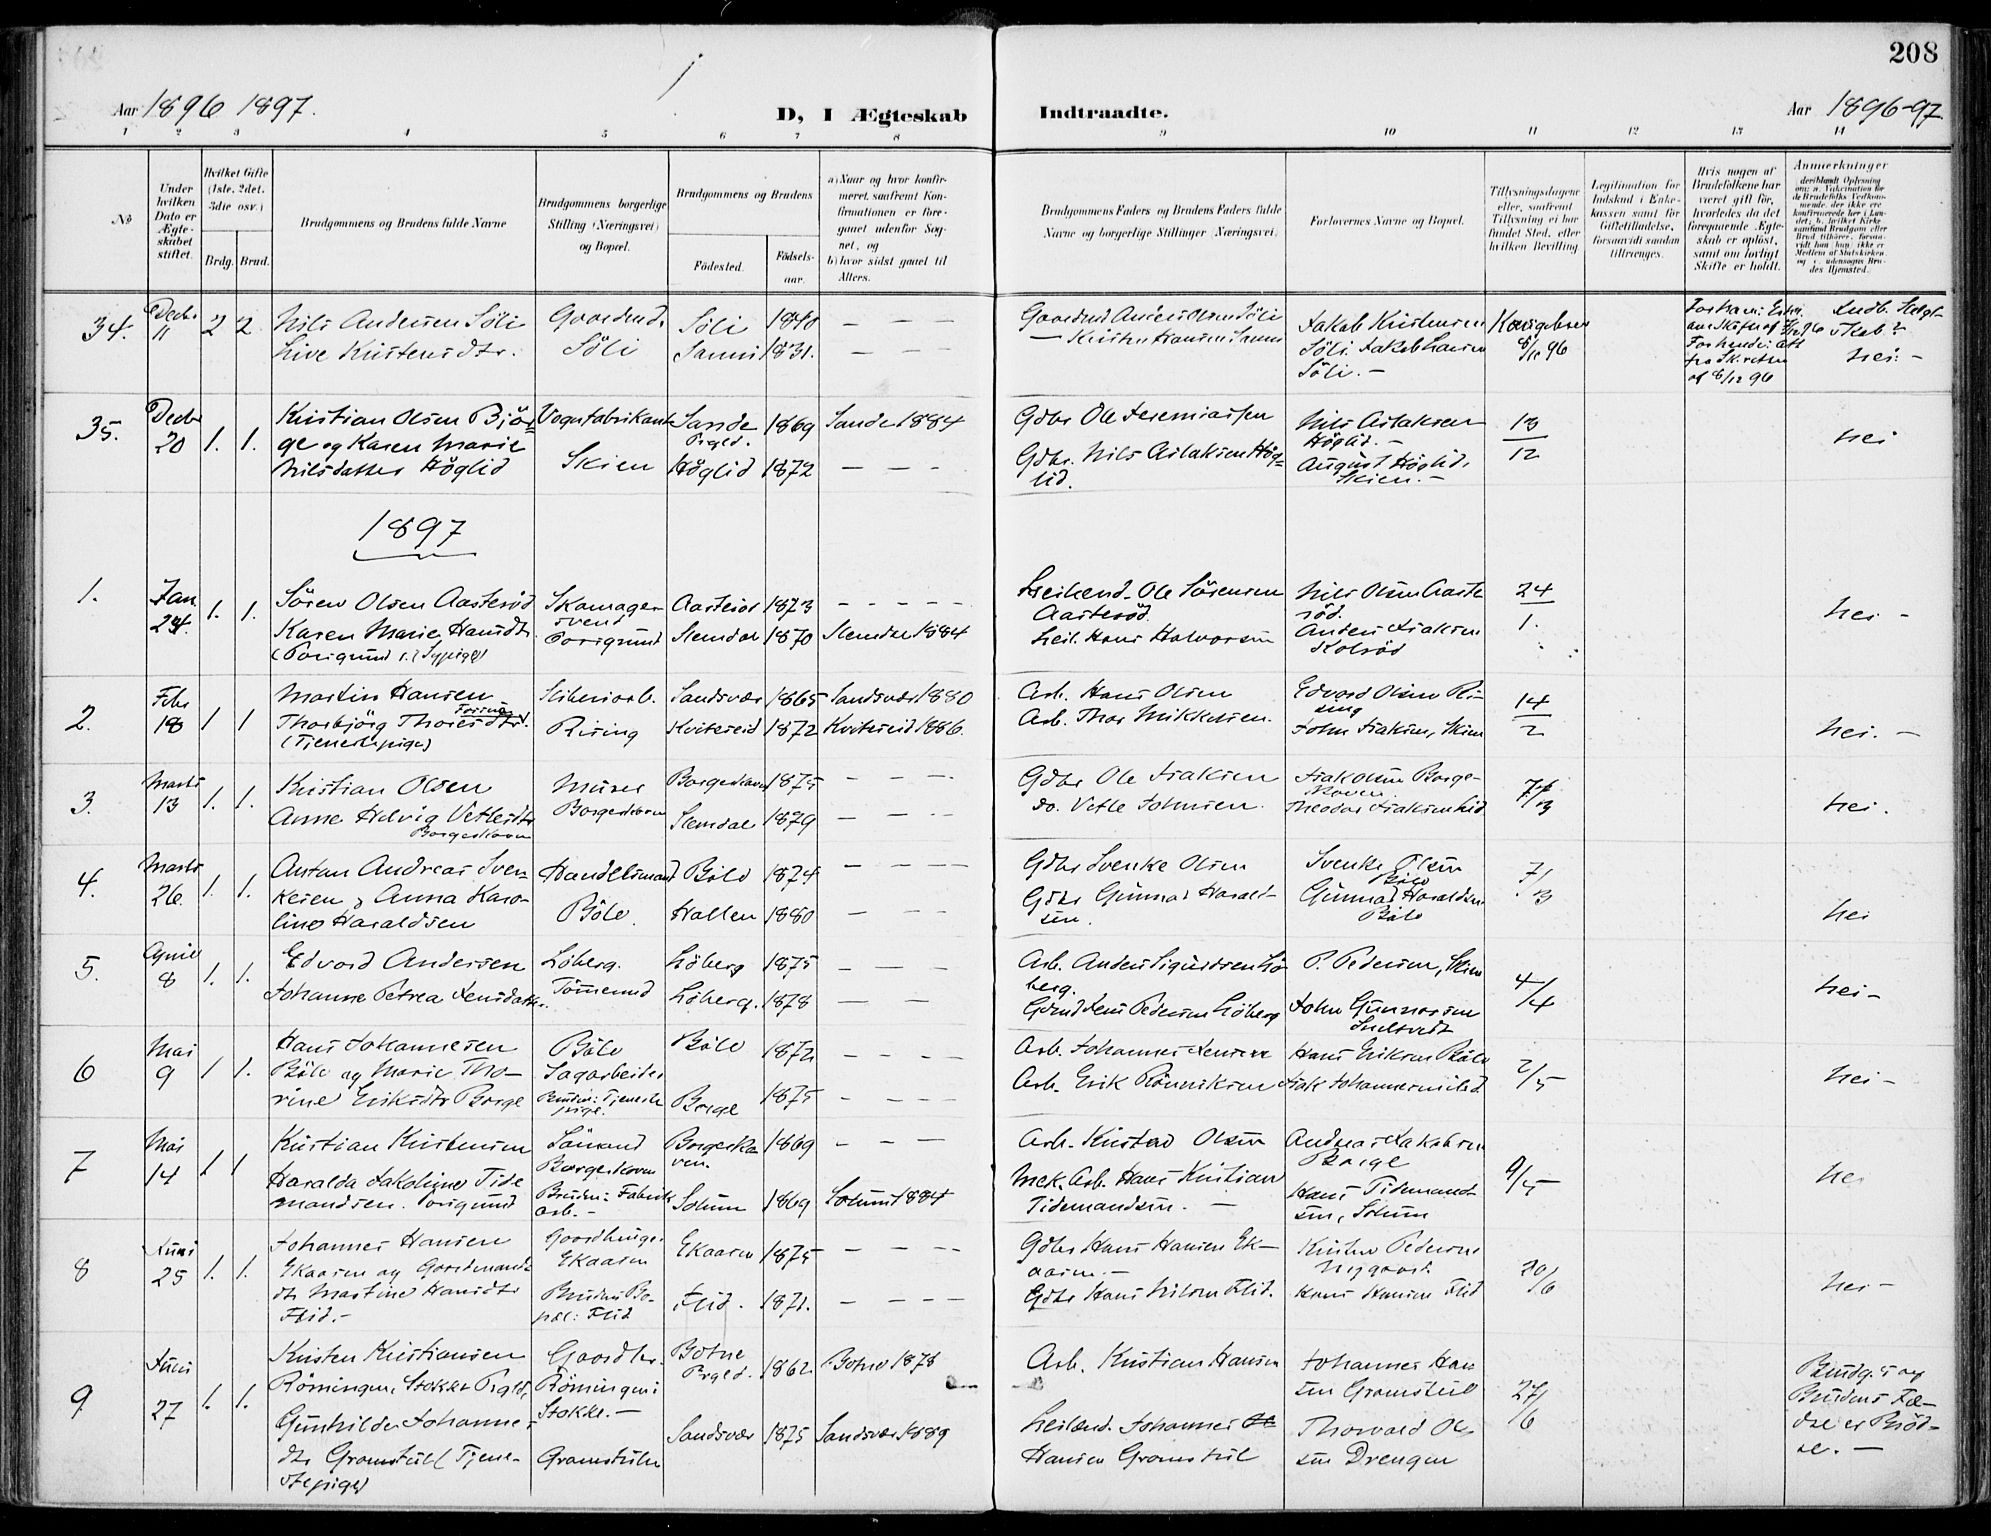 208
Aar 1896 1897.
D, I Ægteskab
Indtraadte.
Aar 1896-97
1 2 3 4 5 6 7 8 9 10 11 12 13 14
No
Under hvilken Dato er Ægteskabet stiftet.
Hvilket Gifte (1ste, 2det, 3die osv.)
Brdg. Brud.
Brudgommens og Brudens fulde Navne
Brudgommens borgerlige Stilling (Næringsvei) og Bopæl.
Brudgommens og Brudens
Fødested.
Fødselsaar.
a) Naar og hvor konfirmeret, saafremt Konfirmationen er foregaaet udenfor Sognet, og
b) hvor sidst gaaet til Alters.
Brudgommens Faders og Brudens Faders fulde Navne og borgerlige Stillinger (Næringsvei)
Forlovernes Navne og Bopæl.
Tillysningsdagene eller, saafremt Tillysning ei har fundet Sted, efter hvilken Bevilling.
Legitimation for Indskud i Enkekassen samt for Giftetilladelse, forsaavidt saadan tiltrænges.
Hvis nogen af Brudefolkene har været gift før, hvorledes da det foregaaende Ægteskab er opløst, samt om lovligt Skifte er holdt.
Anmærkninger
34. Decbr 11 2 2
Nils Andersen Söli
Live Kristensdtr.
Söli
Söli 1840 — — —
Sanni 1831. — — —
Jakob Kristensen
Söli. Jakob Larsen
Söli. —
8/12 96
nei. —
35. Decbr 20 1. 1.
Kristian Olsen Björ=
ge og Karen Marie
Nilsdatter Höglid
Vognfabrikant
Skien
Sande Prgld. 1869 Sande 1884
Höglid 1872 — — —
Gdbr Ole Jeremiassen
Gdbr. Nils Aslaksen Hög=
lid.
Nils Aslaksen
Höglid. —
August Höglid,
Skien. —
13
12
nei
1897
1. Jan. 24. 1. 1.
Sören Olsen Aasteröd
Karen Marie Hansdtr.
(Porsgrund s. (Sypige)
Skomager-
svend
Porsgrund
1873 — — — — —
Slemdal 1870 Slemdal 1884
Leilend. Ole Sörensen
Aasteröd.
Leil. Hans Halvorsen
Nils Olsen Aaste
röd.
Anders Isaksen
24
1.
nei —
2. Febr 18 1 1
Martin Hansen
Thorbjörg Thoresdtr.
(Tjenestepige)
Sliberiarb.
Rising
Sandsvær 1865 Sandsvær 1880
Kviteseid 1872 Kviteseid 1886.
Arb. Hans Olsen
Arb. Thor Mikkelsen.
Edvard Olsen Ri-
sing
John Isaksen, Skien
14
2
nei. —
3. Marts 13 1. 1.
Kristian Olsen
Anne Helvig Vetlesdtr
Borgeskoven
Murer
Borgeskoven
Borgeskoven 1875 — — —
Slemdal 1879 — — —
Gdbr Ole Isaksen
do. Vetle Johnsen.
Isak Olsen Borge-
skoven
Theodor Isaksen Lid
7/3
nei.
4. Marts 26 1. 1.
Anton Andreas Sven-
kesen & Anna Karo-
line Haraldsen
Handelsmand
Böle.
Böle 1874 — — —
Hatten 1880 — — —
Gdbr Svenke Olsen
Gdbr Gunnar Harald-
sen.
Svenke Olsen
Böle
Gunnar Haraldsen
Böle
7/3
nei
5. April 8 1. 1.
Edvard Andersen
Johanne Petrea Jensdatter.
Löberg.
Tömmermd
Löberg 1875 — — —
Löberg. 1878 — — —
Arb. Anders Sigurdsen Lö
berg.
Gdmd Jens Pedersen Löberg
P. Pedersen, Skien
John Gunnarsen
4/4
nei —
6 Mai 9 1 1.
Hans Johannesen
Böle og Marie Tho-
rine Eriksdtr Borge
Böle
Sagarbeider
Brudens: Tjeneste
pige.
Böle 1872 — — —
Borge 1875 — — —
Arb. Johannes Jensen
Arb. Erik Rönniksen
Hans Eriksen Böle
Isak Johannesen Lid
2/5
nei —
7 Mai 14 1 1
Kristian Kristensen
Haralda Jakobine Tide
mandsen. Porsgrund
Sömand
Borgeskoven
Brudens: Fabrik
arb. —
Borgesko
ven. 1869 — — —
Solum 1869 Solum 1884
Arb. Kristen Olsen
Mek. Arb. Hans Kristian
Tidemandsen. —
Andreas Jakobsen
Borge
Hans Tidemand-
sen, Solum
9/5
nei
8 Juni 25 1. 1.
Johannes Hansen
Ekaasen og Gaardmands
dtr Martine Hansdtr
Flid. —
Ekaasen
Brudens Bo-
pæl: Flid
Ekaasen 1875 — — —
Flid. 1871. — — —
Gdbr Hans Hansen Ek-
aasen. —
Gdbr Hans Nilsen Flid.
Kristen Pedersen
Nygaard.
Hans Hansen Flid
20/6
nei —
9 Juni 27 1. 1.
Kristen Kristiansen
Römingen, Stokke Prgld,
Gunhilda Johanne-
dtr Gromstul (Tjene-
stepige)
Gaardbr.
Römingen i
Stokke. —
Gromstulen
Botne
Prgld. 1862 Botne 1878
Sandsvær 1875 Sandsvær 1889
Arb. Kristian Hansen
Leilend. Johannes
Hansen Gromstul
Johannes Han
sen Gromstul
Thorvald Ol-
sen Drengen
27/6
Brudg.s og
Brudens Fæ-
dre er Bröd-
re. —